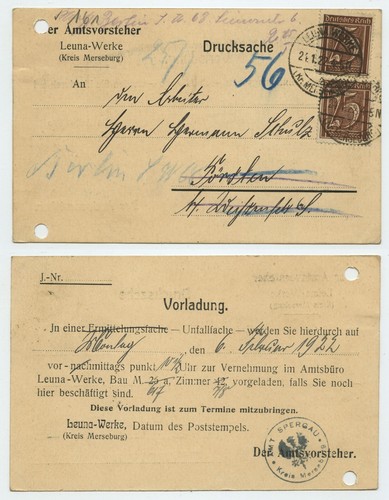 Der Amtsvorsteher
Leuna-Werke
(Kreis Merseburg)
Drucksache
56
Deutsches Reich
25
An
den Arbeiter
Herrn Hermann Schulz
Berlin SW
J.-Nr.
Vorladung.
In einer Ermittelungssache — Unfallsache — werden Sie hierdurch auf
Montag, den 6. Februar 1922
vor-nachmittags punkt 10 Uhr zur Vernehmung im Amtsbüro
Leuna-Werke, Bau M. 23 a, Zimmer vorgeladen, falls Sie noch
hier beschäftigt sind.
Diese Vorladung ist zum Termine mitzubringen.
Leuna-Werke, Datum des Poststempels.
(Kreis Merseburg)
Der Amtsvorsteher.
AMT SPERGAU
Kreis Merseburg